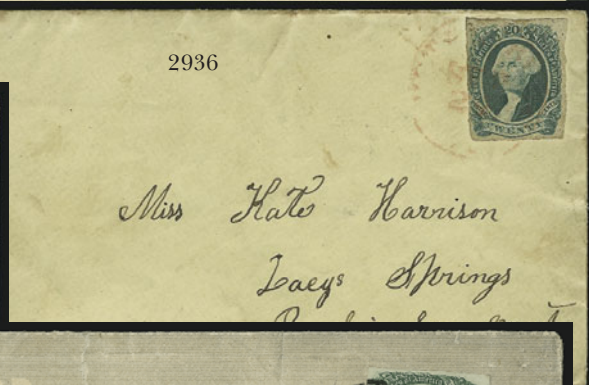 2936
20
TWENTY
Miss Kate Harrison
Laeys Springs